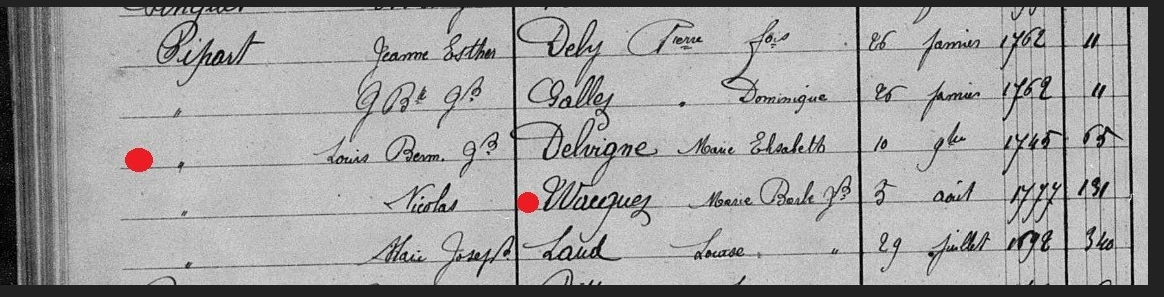 Pipart Jeanne Esther Dely Pierre fois 26 janvier 1762 "
" J Bte Gallez Dominique 26 janvier 1762 "
" Louis Bern. Delvigne Marie Elisabeth 10 9bre 1745 65
" Nicolas Wacquez Marie Barbe 5 août 1777 131
" Marie Joseph Laud Louise " 29 juillet 1692 340